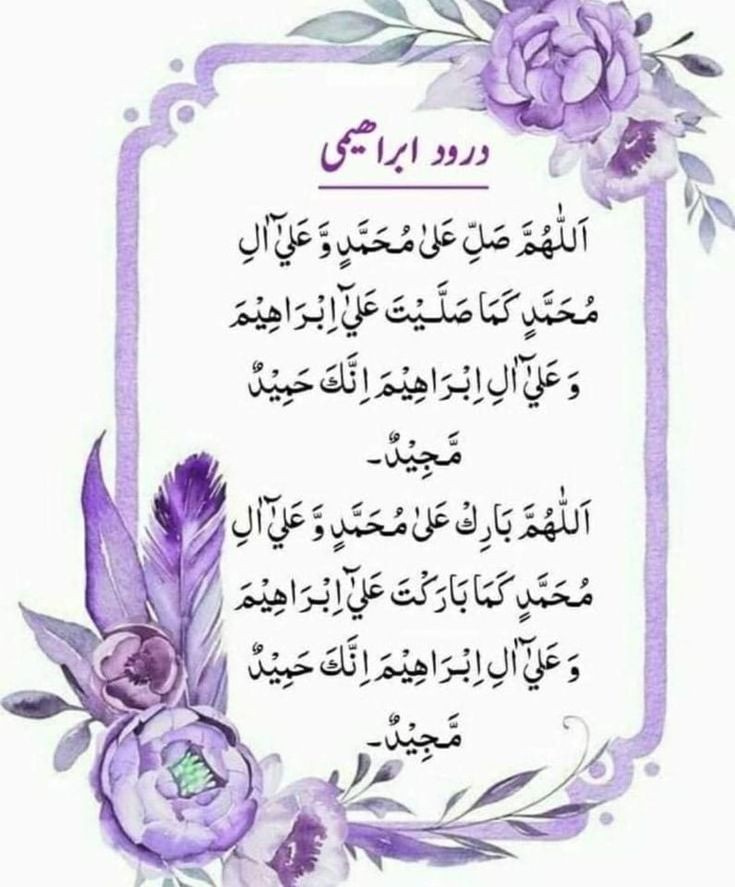 درود ابراھیمی
اَللّٰهُمَّ صَلِّ عَلىٰ مُحَمَّدٍ وَّ عَلٰٓي اٰلِ
مُحَمَّدٍ كَمَا صَلَّيْتَ عَلٰٓي اِبْرَاهِيْمَ
وَ عَلٰٓي اٰلِ اِبْرَاهِيْمَ اِنَّكَ حَمِيْدٌ
مَّجِيْدٌ۔
اَللّٰهُمَّ بَارِكْ عَلىٰ مُحَمَّدٍ وَّ عَلٰٓي اٰلِ
مُحَمَّدٍ كَمَا بَارَكْتَ عَلٰٓي اِبْرَاهِيْمَ
وَ عَلٰٓي اٰلِ اِبْرَاهِيْمَ اِنَّكَ حَمِيْدٌ
مَّجِيْدٌ۔